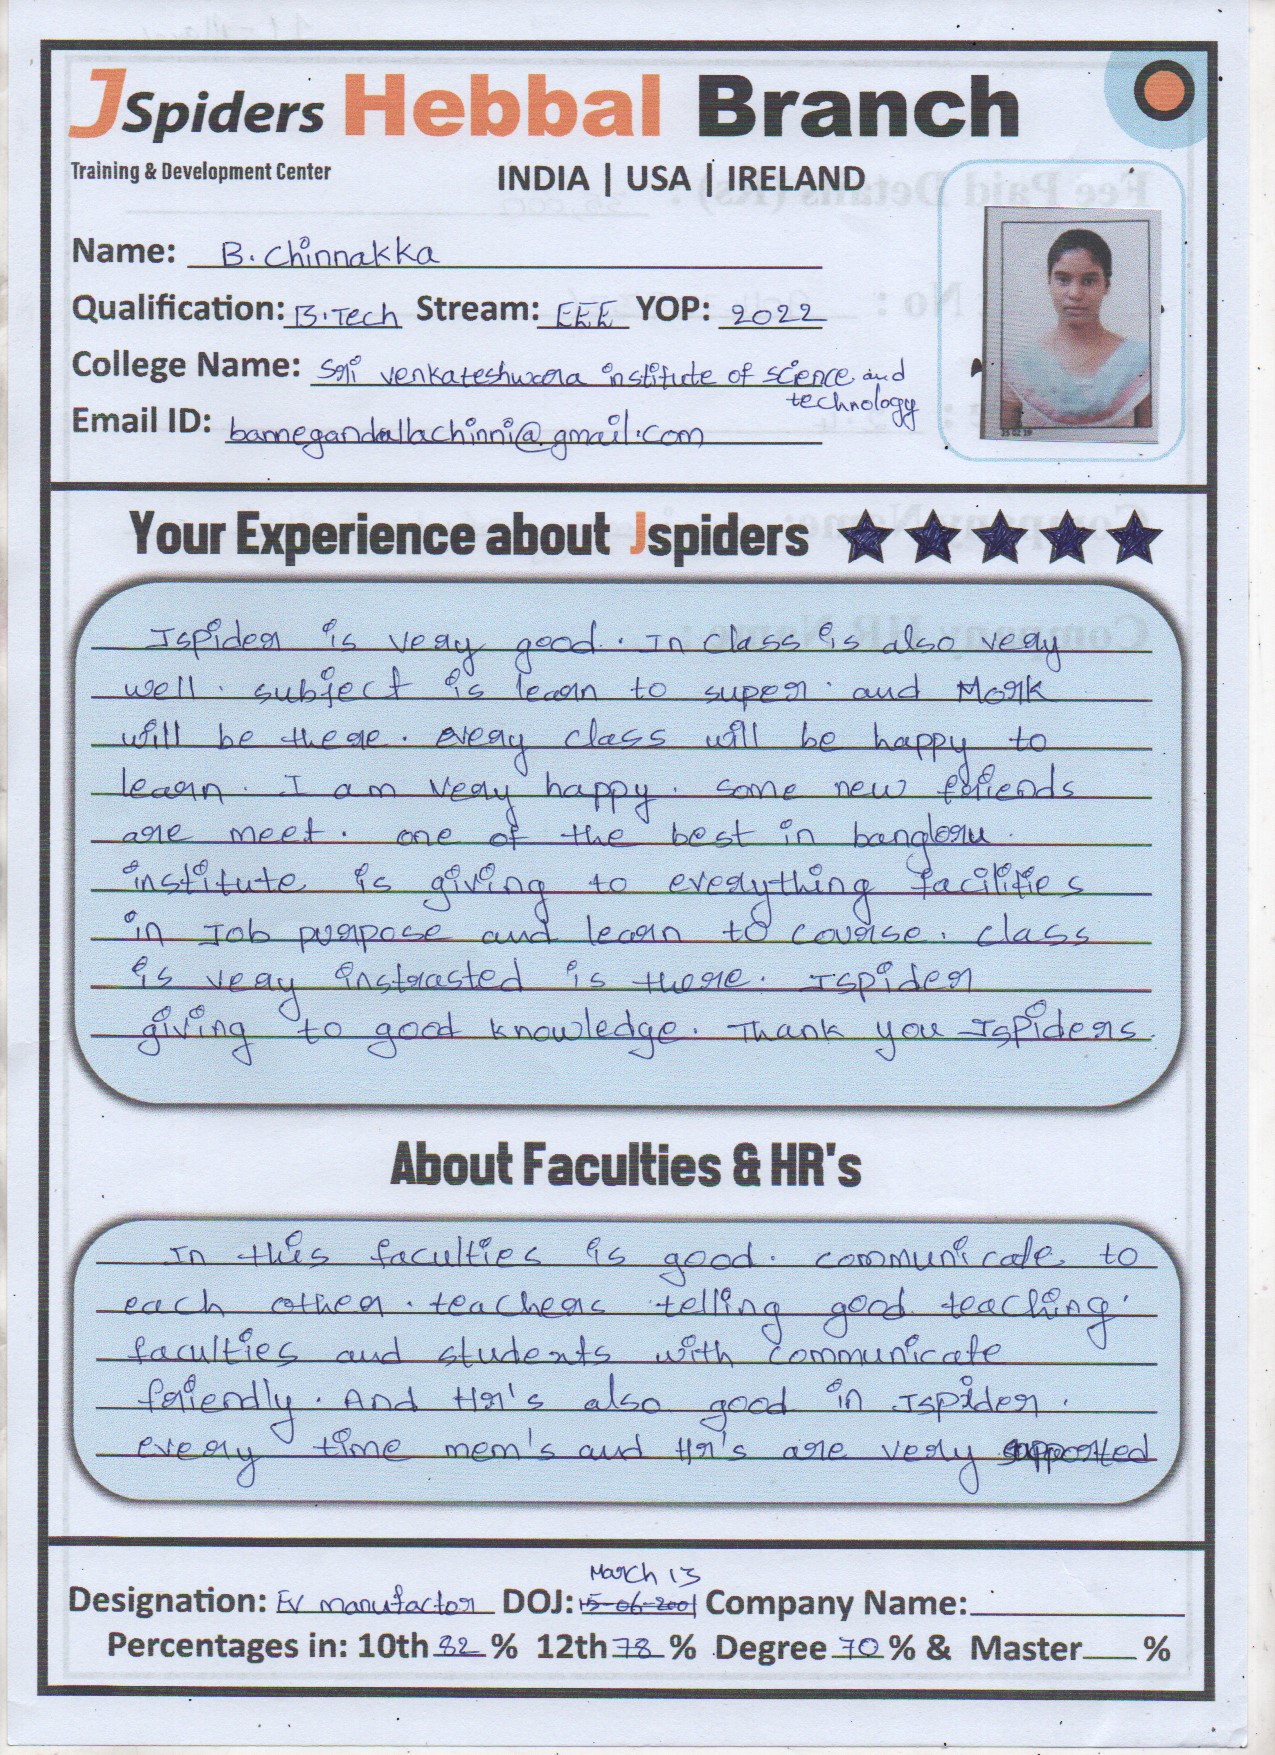 JSpiders Hebbal Branch
Training & Development Center
INDIA | USA | IRELAND
Name: B. Chinnakka
Qualification: B.Tech Stream: EEE YOP: 2022
College Name: Sri venkateshwara institute of science and
technology
Email ID: bannegandallachinni@gmail.com
Your Experience about Jspiders
Jspider is very good. In class is also very
well. subject is learn to super. and Mork
will be there. every class will be happy to
learn. I am very happy. some new friends
are meet. one of the best in bangloru.
institute is giving to everything facilities
in Job purpose and learn to course. class
is very instrasted is there. Jspider
giving to good knowledge. Thank you Jspiders.
About Faculties & HR's
In this faculties is good. communicate to
each other. teachers telling good teaching.
faculties and students with communicate
friendly. And Hr's also good in Jspider.
every time mem's and Hr's are very supported
March 13
Designation: EV manufactor DOJ: 15-06-2001 Company Name:
Percentages in: 10th 82 % 12th 78 % Degree 70 % & Master %